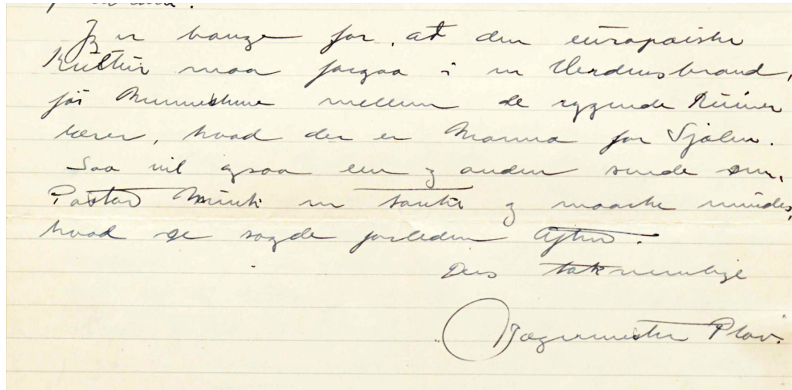 Jeg er bange for, at den europæiske
Kultur maa forgaa i en Verdensbrand,
før Menneskene mellem de rygende Ruiner
lærer, hvad der er Manna for Sjælen.
Saa vil ogsaa een og anden sende dem,
Pastor Munk en Tanke og maaske mindes,
hvad De sagde forleden Aften.
Deres taknemlige
Jægermester Plov.